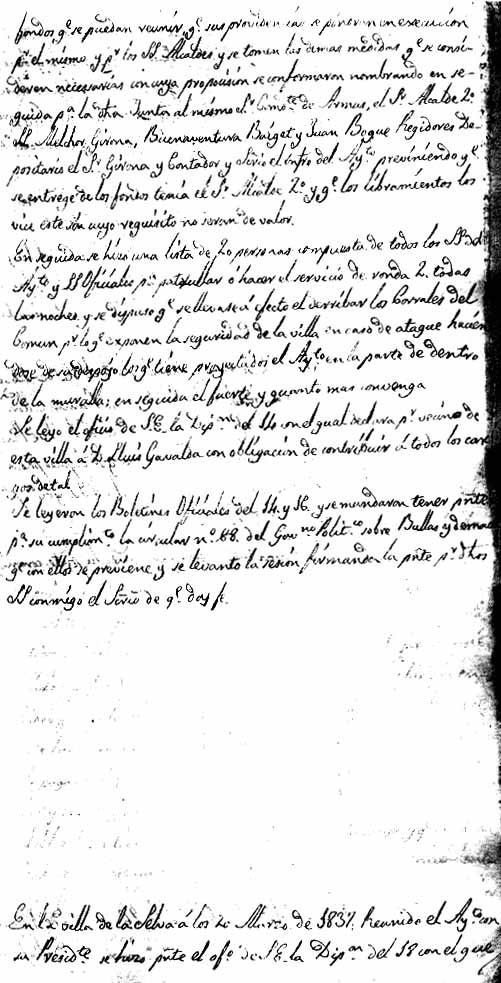 fondos q.e se puedan reunir, q.e sus providencias se ponen en execucion
p.r el mismo y p.r los SS. Alcaldes y se tomen las demas medidas q.e se consi-
deren necesarias con cuya proposicion se conformaron nombrando en se-
guida p.a la dha Junta al mismo S.r Com.te de Armas, el S.r Alcalde 2.o
SS. Melchor Girona, Buenaventura Baiget y Juan Boque Regidores De-
positario el S.r Girona y Contador y Srio el infro del Ay.to previniendo q.e
se entrege de los fondos tenia el S.r Alcalde 2.o y q.e los libramientos los
vice este sin cuyo requisito no seran de valor.
En seguida se hizo una lista de 20 personas compuesta de todos los SS. del
Ay.to y SS. Oficiales p.a patrullar ó hacer el servicio de ronda 2. todas
las noches, y se dispuso q.e se llevase á efecto el derribar los Corrales del
Comun p.r lo q.e exponen la seguridad de la villa en caso de ataque hacien
dose de los q.e tiene proyectados el Ay.to en la parte de dentro
de la muralla; en seguida el fuerte y quanto mas convenga
Se leyo el oficio de S.E. la Dip.on del 14 con el qual declara p.r vecino de
esta villa á D. Lluis Gavalda con obligacion de contribuir á todos los car
gos de tal
Se leyeron los Boletines Oficiales del 14. y 16. y se mandaron tener pnte
p.a su cumplim.to la circular n.o 68. del Gov.no Polit.co sobre Bullas y demas
q.e con ellos se previene y se levanto la sesion firmando la pnte p.r dhos
SS. conmigo el Srio de q.e doy fe.
En la villa de la Selva á los 20 Marzo de 1837, Reunido el Ay.to con
su Presid.te se hizo pnte el of.o de S.E. la Dip.on del 18 con el que